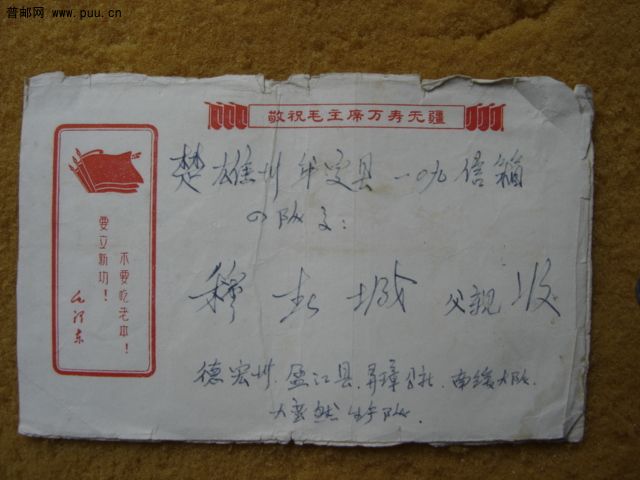 普邮网 www.puu.cn
敬祝毛主席万寿无疆
楚雄州牟定县一四九信箱
四队交:
穆 城 父親 收
德宏州.盈江县.弄璋公社.南 大队.
大 生产队.
不要吃老本!
要立新功!
毛泽东